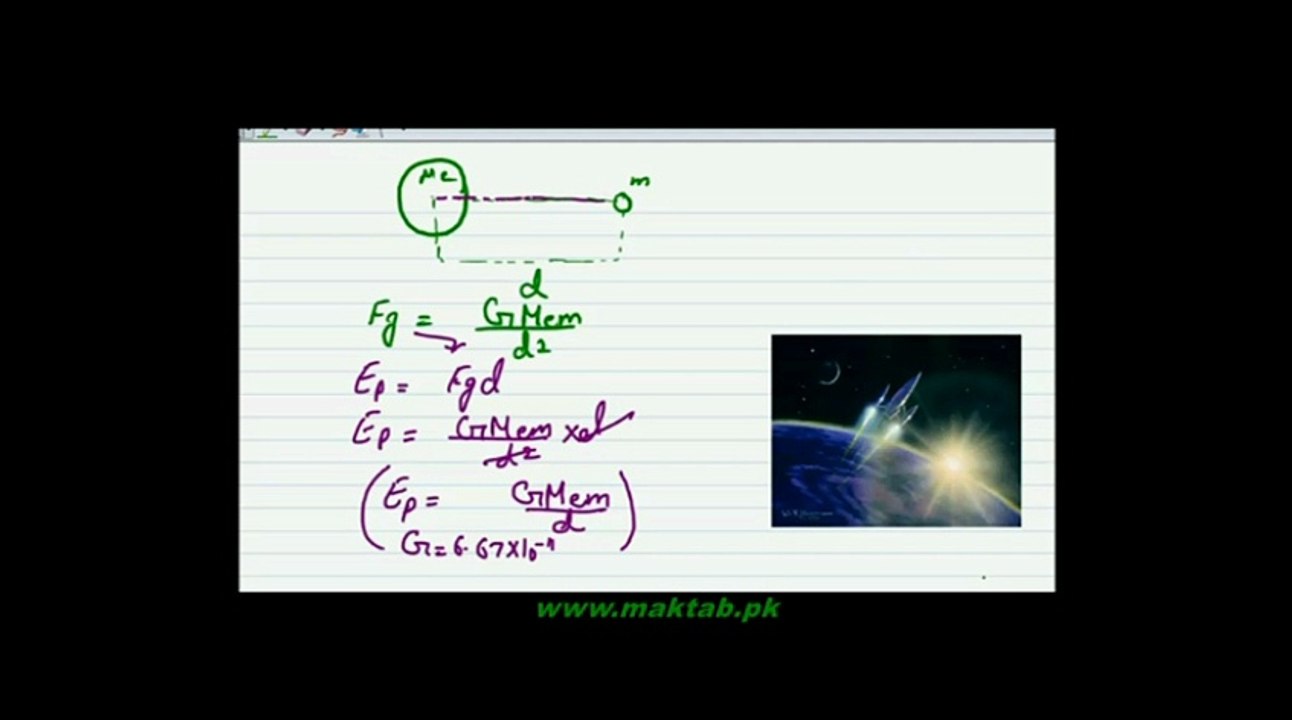 Me
m
d
Fg = GMem/d²
Ep = Fgd
Ep = GMem/d² xd
(Ep = GMem/d)
G=6.67x10
www.maktab.pk